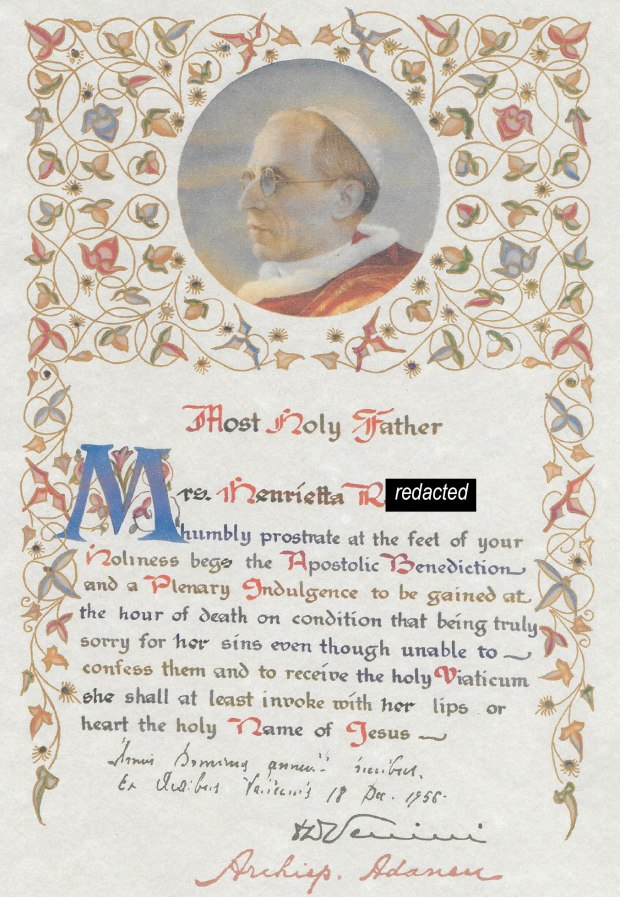 Most Holy Father
Mrs. Henrietta R redacted
humbly prostrate at the feet of your
Holiness begs the Apostolic Benediction
and a Plenary Indulgence to be gained at
the hour of death on condition that being truly
sorry for her sins even though unable to
confess them and to receive the holy Viaticum
she shall at least invoke with her lips or
heart the holy Name of Jesus
Dominus annuit precibus.
Ex Aedibus Vaticanis 18 Dec.
Venini
Archiep. Adanen